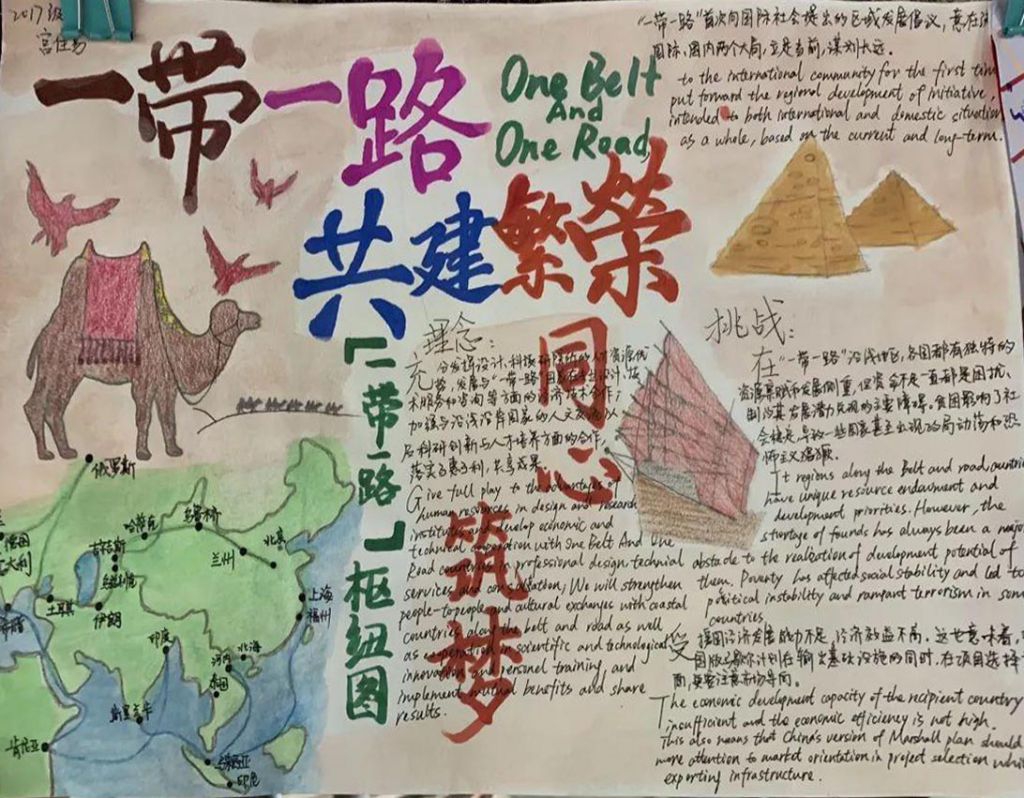 2017级
一带一路
One Belt
And
One Road
共建繁荣
同心
筑梦
"一带一路"首次向国际社会提出的区域发展倡议,意在
国际、国内两个大局,立足当前,谋划长远。
to the international community for the first time
put forward the regional development of initiative,
intended to both international and domestic situation
as a whole, based on the current and long-term.
理念:
充分发挥设计、科技研
势,发展与"一带一路"国
术服务和咨询等方面的经济技术合作;
加强与沿线沿岸国家的人文交流以
及科研创新与人才培养方面的合作,
落实互惠互利,共享成果。
Give full play to the advantages of
human resources in design and research
institutes and develop echonic and
technical cooperation with One Belt And One
Road countries in professional design, technical
services and consultation, We will strengthen
people-to-people and cultural exchanges with coastal
countries along the belt and road as well
as cooperation in scientific and technological
innovation and personal training, and
implement mutual benefits and share
results.
「一带一路」枢纽图
俄罗斯
德国
意大利
哈萨克
乌鲁木齐
吉尔吉斯
北京
兰州
土耳其
伊朗
上海
福州
印度
北海
河内
泰国
斯里兰卡
肯尼亚
马来西亚
印尼
挑战:
在"一带一路"沿线地区,各国都有独特的
资源禀赋和发展侧重,但资金不足一直都是困扰、
制约其发展潜力兑现的主要障碍。贫困影响了社
会稳定导致一些国家甚至出现政局动荡和恐
怖主义猖獗。
It regions along the Belt and road, countries
have unique resource endowment and
development priorities. However, the
shortage of founds has always been a major
obstacle to the realization of development potential of
them. Poverty has affected social stability and led to
political instability and rampant terrorism in some
countries.
受援国经济发展能力不足,经济效益不高。这也意味着,
国版马歇尔计划在输出基础设施的同时,在项目选择
面,更要注意市场导向。
The economic development capacity of the recipient country
insufficient and the economic efficiency is not high.
This also means that China's version of Marshall plan should
more attention to market orientation in project selection while
exporting infrastructure.